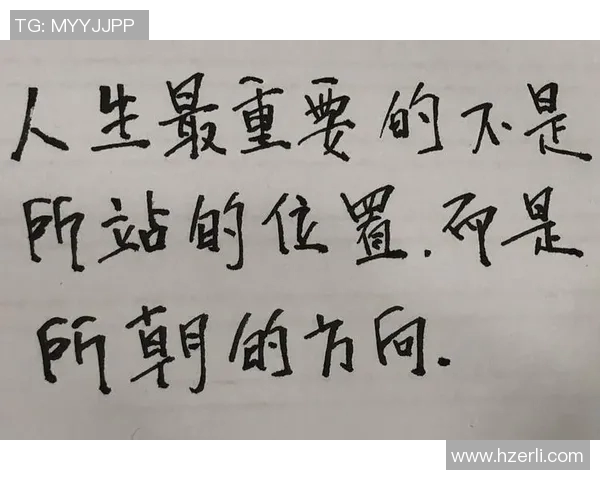 TG: MYYJJPP
人生最重要的不是
所站的位置.而是
所朝的方向.
www.hzerli.com